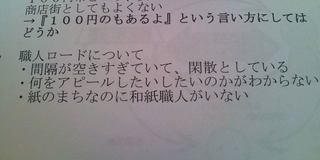 商店街としてもよくない
→『１００円のもあるよ』という言い方にしては
どうか
職人ロードについて
・間隔が空きすぎていて、閑散としている
・何をアピールしたいしたいのかがわからない
・紙のまちなのに和紙職人がいない